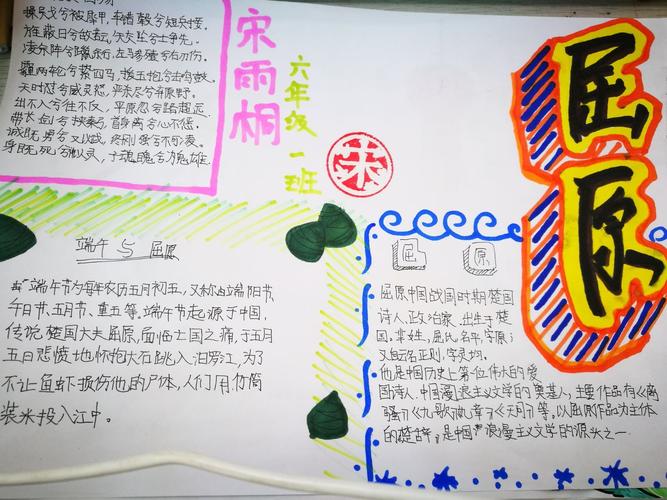 操吴戈兮被犀甲,车错毂兮短兵接。
旌蔽日兮敌若云,矢交坠兮士争先。
凌余阵兮躐余行,左骖殪兮右刃伤。
霾两轮兮絷四马,援玉枹兮击鸣鼓。
天时怼兮威灵怒,严杀尽兮弃原野。
出不入兮往不反,平原忽兮路超远
带长剑兮挟秦弓,首身离兮心不惩。
诚既勇兮又以武,终刚强兮不可凌。
身既死兮神以灵,子魂魄兮为鬼雄。
宋雨桐
六年级一班
朱
屈原
端午与屈原
端午节为每年农历五月初五,又称占端阳节
午日节、五月节、重五等,端午节起源于中国,
传说楚国大夫屈原,面临亡国之痛,于五月
五日悲愤地怀抱大石跳入汨罗江,为了
不让鱼虾损伤他的尸体,人们用竹筒
装米投入江中。
屈 原
屈原中国战国时期楚国
诗人、政治家、出生于楚
国,芈姓,屈氏,名平,字原;
又自云名正则,字灵均。
他是中国历史上第一位伟大的爱
国诗人,中国漫浪主义文学的奠基人,主要作品有《离
骚》《九歌》《九章》《天问》等,以屈原作品为主体
的《楚辞》是中国浪漫主义文学的源头之一